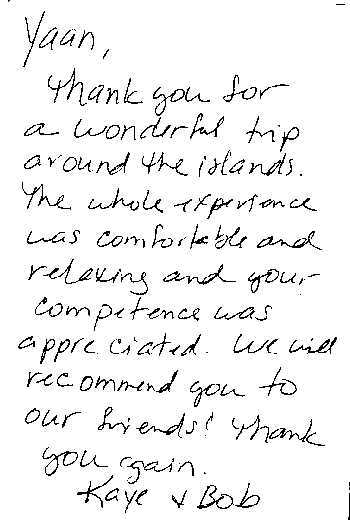 Yaan,
Thank you for
a wonderful trip
around the islands.
The whole experience
was comfortable and
relaxing and your
competence was
appreciated. We will
recommend you to
our friends! Thank
you again.
Kaye & Bob